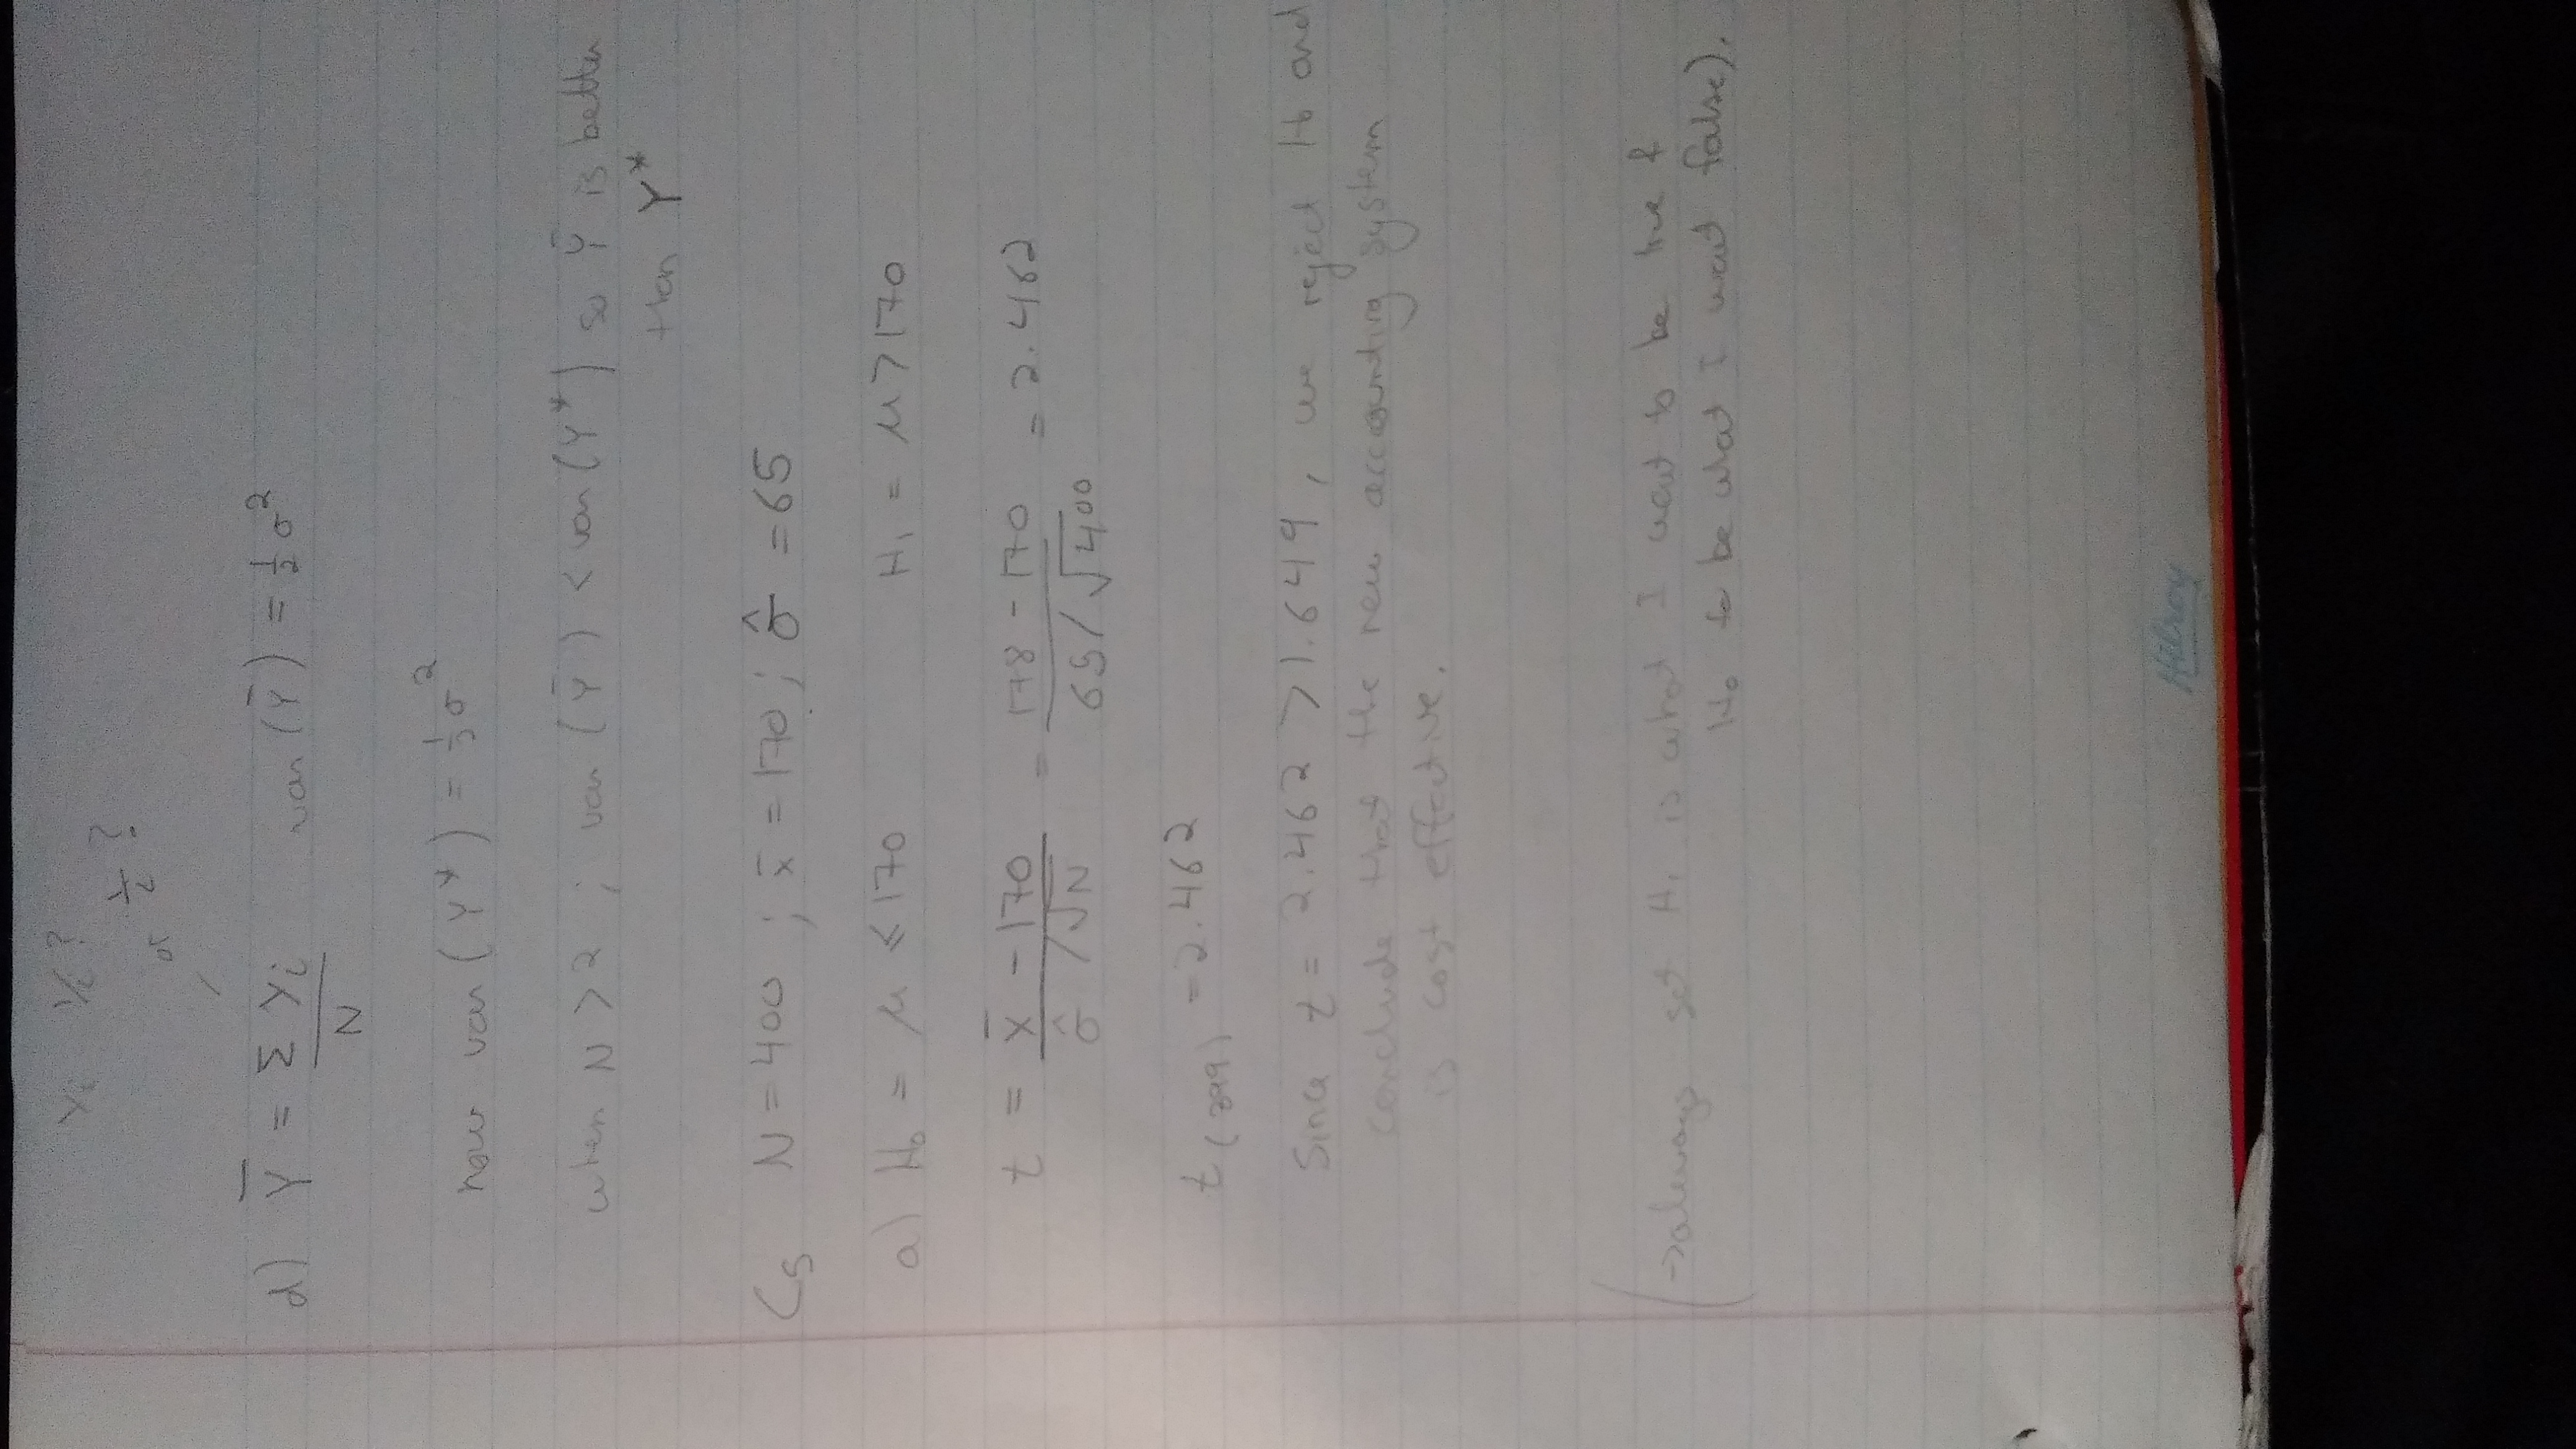 Yi Yi?
or
d) Ȳ = Σ yi / N    var (Ȳ) = 1/2 σ²
now var (Y*) = 1/2 σ²
when N > 2 ; var (Ȳ) < var (Y*) so Ȳ is better
than Y*
C5 N = 400 ; x̄ = 170 ; σ̂ = 65
a) H₀ = μ ≤ 170    H₁ = μ > 170
t = x̄ - 170 / σ̂ /√N = 178 - 170 / 65/√400 = 2.462
t (399) = 2.462
Since t = 2.462 > 1.649, we reject H₀ and
conclude that the new accounting system
is cost effective.
(→ always set H₁ is what I want to be true &
H₀ to be what I want false).
Hilroy